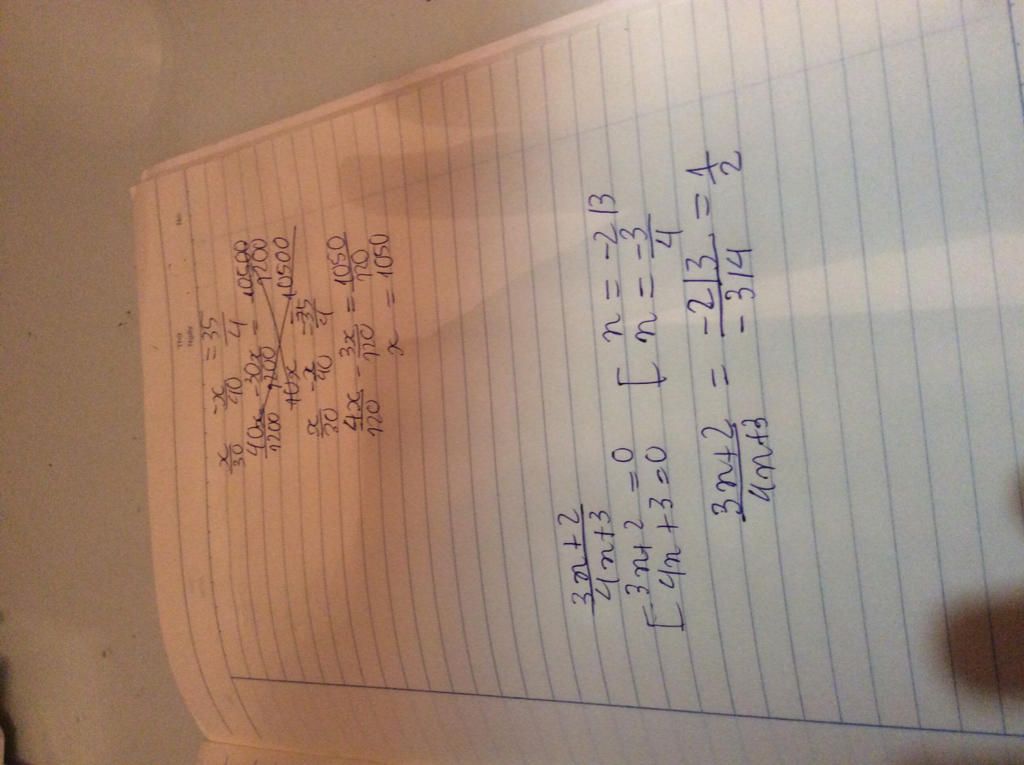 x/30 - x/40 = 35/4
40x/1200 - 30x/1200 = 10500/1200
10x 10500
x/30 - x/40 = 35/4
4x/120 - 3x/120 = 1050/120
x = 1050
3n+2/4n+3
[3n+2=0 [n=-2/3
[4n+3=0 [n=-3/4
3n+2/4n+3 = -2/3/-3/4 = 1/2